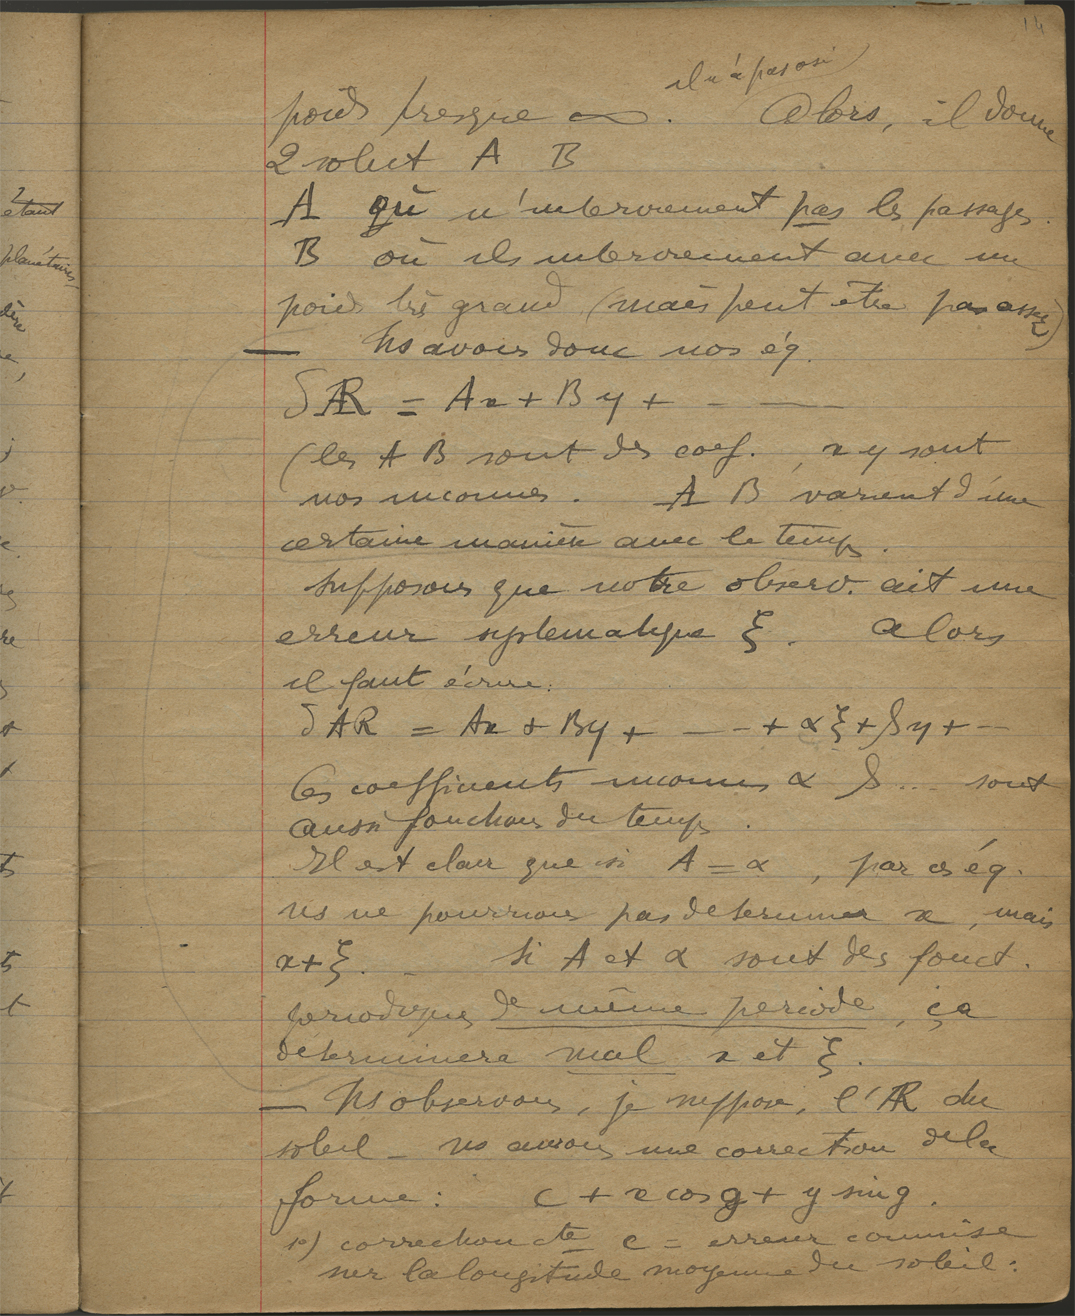 14
il n'a pas osé
poids presque ∞. Alors, il donne
2 solut A B
A où n'interviennent pas les passages.
B où ils interviennent avec un
poids très grand (mais peut être pas assez)
— Ns avons donc nos éq.
δAR = Ax + By + - —
(les A B sont des coef., x y sont
nos inconnues. A B varient d'une
certaine manière avec le temps.
Supposons que notre observ. ait une
erreur systematique ξ. Alors
il faut écrire:
δAR = Ax + By + — - + αξ + βη + -
Ces coefficients inconnus α β... sont
aussi fonctions du temps.
Il est clair que si A = α, par ces éq.
ns ne pourrions pas determiner x, mais
x+ξ. Si A et α sont des fonct.
periodiques de même periode, ça
déterminera mal x et ξ.
— Ns observons, je suppose, l'AR du
soleil — ns aurons une correction de la
forme: c + x cos g + y sin g.
1º) correction cte c = erreur commise
sur la longitude moyenne du soleil:
2
etant
planétaires